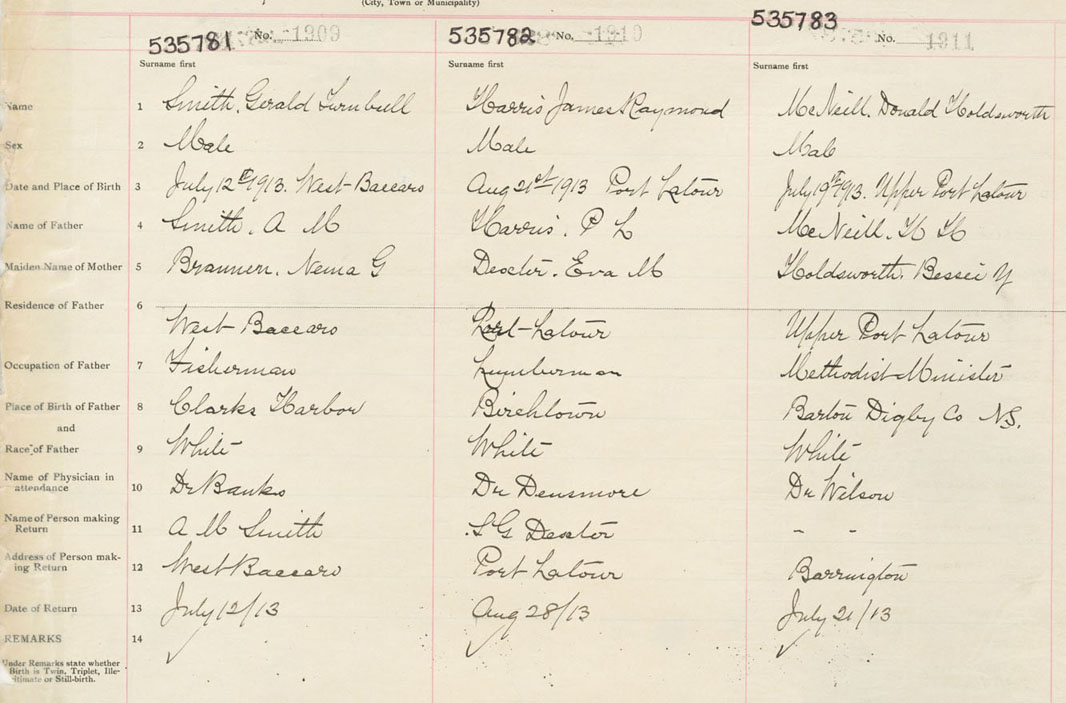 (City, Town or Municipality)
535781 No. 1909 535782 No. 1910 535783 No. 1911
Surname first Surname first Surname first
Name 1 Smith. Gerald Turnbull Harris James Raymond McNeill. Donald Holdsworth
Sex 2 Male Male Male
Date and Place of Birth 3 July 12th 1913. West Baccaro Aug 21st 1913 Port Latour July 19th 1913. Upper Port Latour
Name of Father 4 Smith. A M Harris. P L McNeill. H H
Maiden Name of Mother 5 Brannen. Nema G Dexter. Eva M Holdsworth. Bessei Y
Residence of Father 6
West Baccaro Port-Latour Upper Port Latour
Occupation of Father 7 Fisherman Lumberman Methodist Minister
Place of Birth of Father 8 Clarks Harbor Birchtown Barton Digby Co NS.
and
Race of Father 9 White White White
Name of Physician in
attendance 10 Dr Banks Dr Densmore Dr Wilson
Name of Person making
Return 11 A M Smith S G Dexter - -
Address of Person mak-
ing Return 12 West Baccaro Port Latour Barrington
Date of Return 13 July 12/13 Aug 28/13 July 21/13
REMARKS 14
Under Remarks state whether
Birth is Twin, Triplet, Ille-
gitimate or Still-birth.